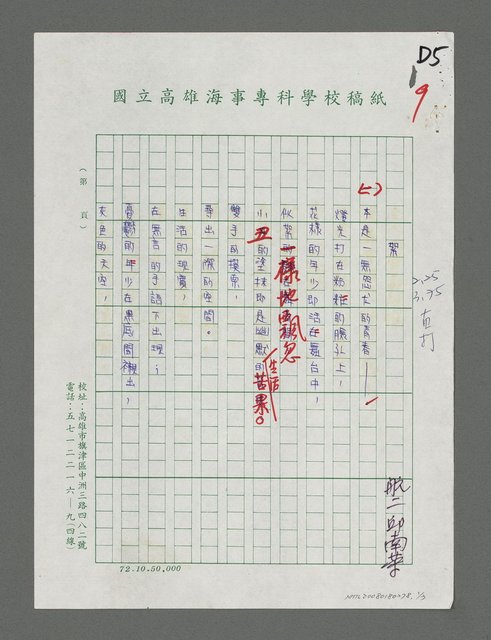 D5
19
國立高雄海事專科學校稿紙
（第　頁）
(二)
絮
本是一無忌犬的青春
燈光打在粉雜的臉孔上，
花樣的年少即活在舞台中，
似絮
一樣地飄忽
小丑的塗抹即是幽默的生活苦果。
雙手的摸索，
尋出一際的空間。
生活的現實，
在無言的手語下出現；
憂鬱的年少在黑底間襯出，
灰色的天空，
2.25
3.75
直打
航二 邱南華
校址：高雄市旗津區中洲三路四八二號
電話：五七一二二一六—九（四線）
72.10.50,000
NMTL20080180278. 1/3